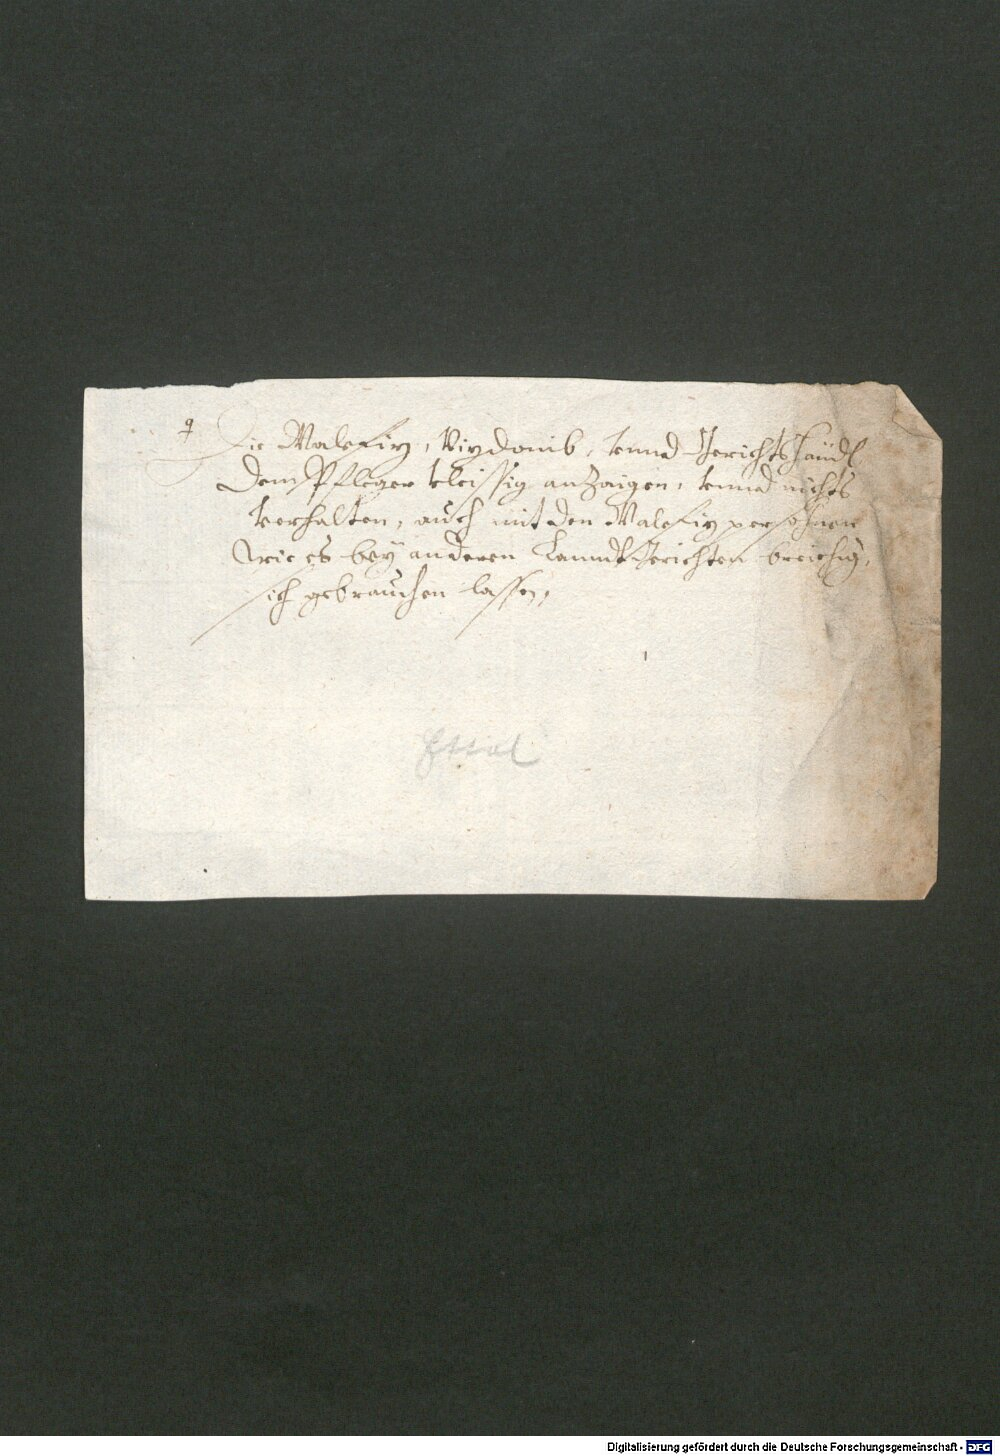 9
Die Malefiz, Vizdomb, vnnd Gerichtshändl
dem Pfleger vleissig anzaigen, vnnd nichts
verhalten, auch mit den Malefiz persohnen
wie es bey anderen Lanndtgerichten breichig,
sich gebrauchen lassen,
Ettal
Digitalisierung gefördert durch die Deutsche Forschungsgemeinschaft - DFG